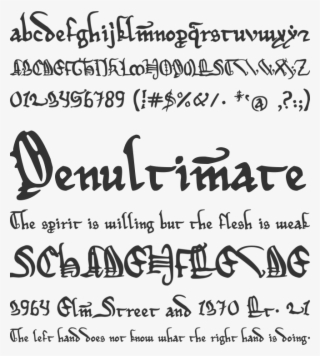 abcdefghijklmnopqrstuvwxyz
ABCDEFGHIJKLMNOPQRSTUVWXYZ
0123456789 (!#$%&/. *‘@ ,?:;)
Penultimate
The spirit is willing but the flesh is weak
SCHADENFREUDE
3964 Elm Street and 1370 Rt. 21
The left hand does not know what the right hand is doing.